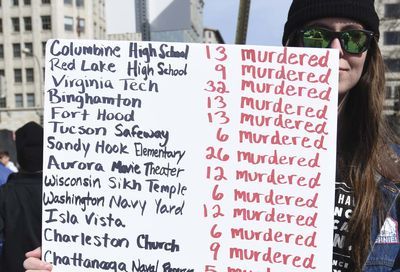 Columbine High School 13 murdered
Red Lake High School 9 murdered
Virginia Tech 32 murdered
Binghamton 13 murdered
Fort Hood 13 murdered
Tucson Safeway 6 murdered
Sandy Hook Elementary 26 murdered
Aurora Movie Theater 12 murdered
Wisconsin Sikh Temple 6 murdered
Washington Navy Yard 12 murdered
Isla Vista 6 murdered
Charleston Church 9 murdered
Chattanooga Naval 5 murdered